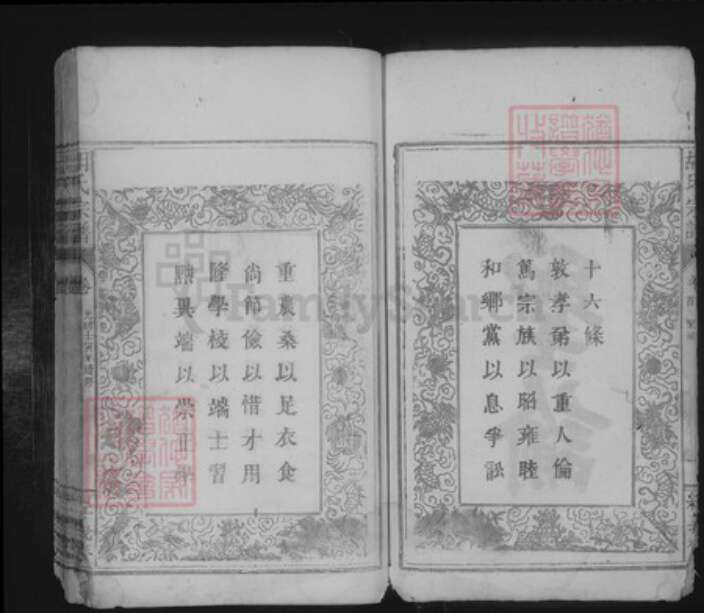 十六條
敦孝弟以重人倫
篤宗族以昭雍睦
和鄉黨以息爭訟
重農桑以足衣食
尚節儉以惜才用
隆學校以端士習
黜異端以崇正學
FamilySearch